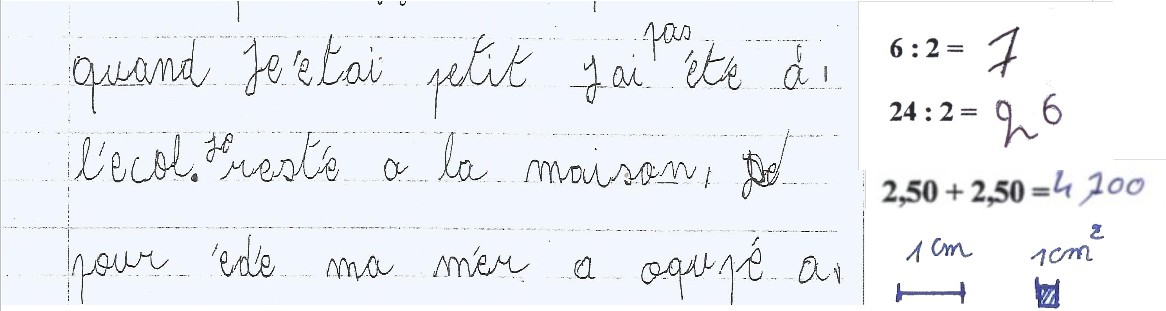 quand Je'etai petit Jai pas éte à
l'ecol. Je resté a la maison,
pour édé ma mér a oqupé a
6 : 2 = 7
24 : 2 = 26
2,50 + 2,50 = 4,700
1 cm 1cm²